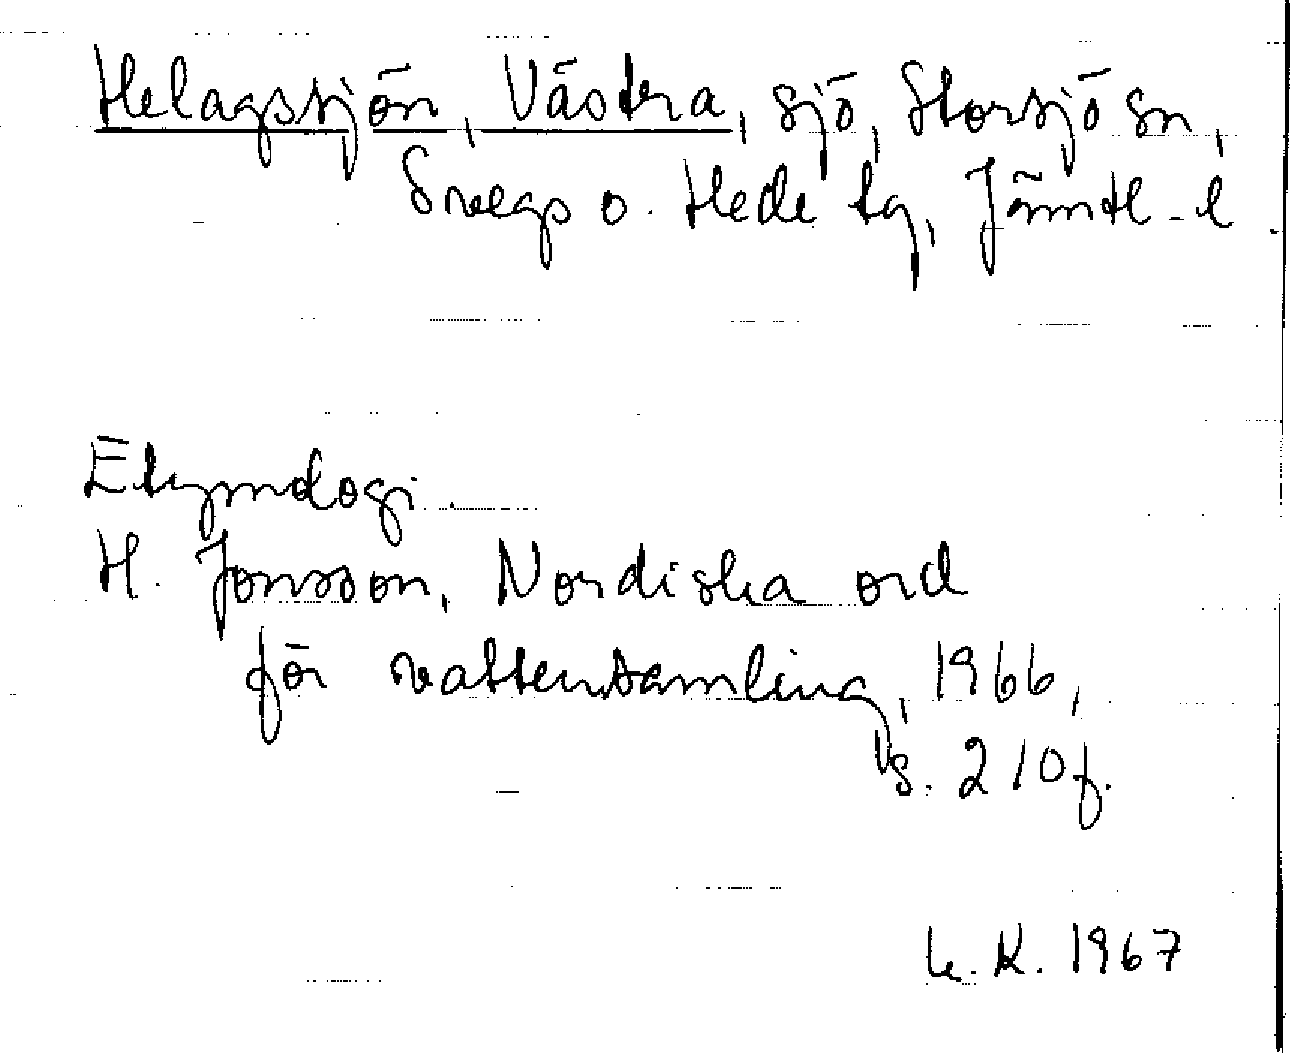 Helagssjön, Västra, sjö, Storsjö sn,
Svegs o. Hede tg, Jämtl. l.
Etymologi
H. Jonsson, Nordiska ord
för vattensamling, 1966,
s. 210f.
K. 1967